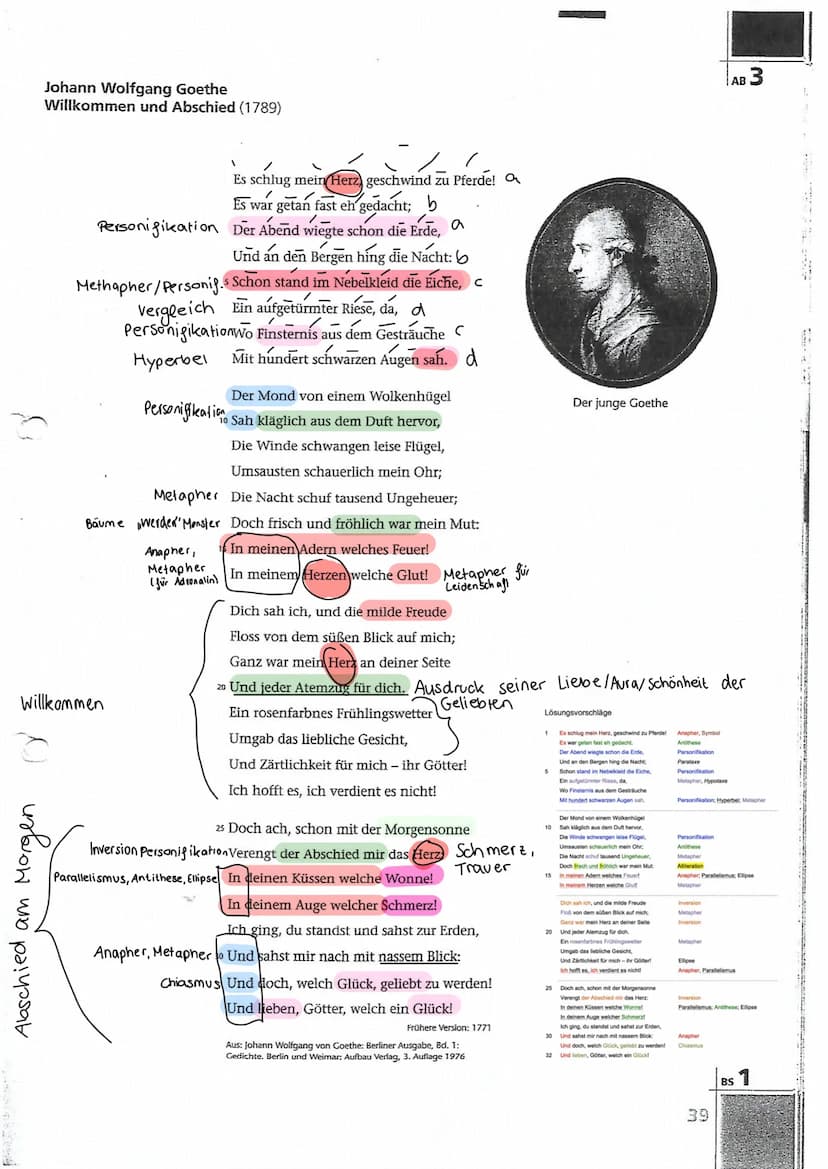 AB 3
Johann Wolfgang Goethe
Willkommen und Abschied (1789)
Es schlug mein Herz, geschwind zu Pferde! a
Es war getan fast eh gedacht; b
Personifikation Der Abend wiegte schon die Erde, a
Und an den Bergen hing die Nacht: b
Methapher/Personif. 5 Schon stand im Nebelkleid die Eiche, c
Vergleich Ein aufgetürmter Riese, da, d
Personifikation Wo Finsternis aus dem Gesträuche c
Hyperbel Mit hundert schwarzen Augen sah. d
Der Mond von einem Wolkenhügel
Personifikation 10 Sah kläglich aus dem Duft hervor,
Die Winde schwangen leise Flügel,
Umsausten schauerlich mein Ohr;
Metapher Die Nacht schuf tausend Ungeheuer;
Bäume "werden" Monster Doch frisch und fröhlich war mein Mut:
Anapher, 15 In meinen Adern welches Feuer!
Metapher (für Adrenalin) In meinem Herzen welche Glut! Metapher für Leidenschaft
Dich sah ich, und die milde Freude
Floss von dem süßen Blick auf mich;
Ganz war mein Herz an deiner Seite
20 Und jeder Atemzug für dich. Ausdruck seiner Liebe/Aura/Schönheit der Geliebten
Willkommen
Ein rosenfarbnes Frühlingswetter
Umgab das liebliche Gesicht,
Und Zärtlichkeit für mich – ihr Götter!
Ich hofft es, ich verdient es nicht!
Abschied am Morgen
25 Doch ach, schon mit der Morgensonne
Inversion Personifikation Verengt der Abschied mir das Herz: Schmerz, Trauer
Parallelismus, Antithese, Ellipse In deinen Küssen welche Wonne!
In deinem Auge welcher Schmerz!
Ich ging, du standst und sahst zur Erden,
Anapher, Metapher 30 Und sahst mir nach mit nassem Blick:
Chiasmus Und doch, welch Glück, geliebt zu werden!
Und lieben, Götter, welch ein Glück!
Frühere Version: 1771
Aus: Johann Wolfgang von Goethe: Berliner Ausgabe, Bd. 1:
Gedichte. Berlin und Weimar: Aufbau Verlag, 3. Auflage 1976
Der junge Goethe
Lösungsvorschläge
1 Es schlug mein Herz, geschwind zu Pferde! Anapher, Symbol
Es war getan fast eh gedacht; Antithese
Der Abend wiegte schon die Erde, Personifikation
Und an den Bergen hing die Nacht; Parataxe
5 Schon stand im Nebelkleid die Eiche, Personifikation
Ein aufgetürmter Riese, da, Metapher, Hypotaxe
Wo Finsternis aus dem Gesträuche
Mit hundert schwarzen Augen sah. Personifikation; Hyperbel; Metapher
Der Mond von einem Wolkenhügel
10 Sah kläglich aus dem Duft hervor,
Die Winde schwangen leise Flügel, Personifikation
Umsausten schauerlich mein Ohr; Antithese
Die Nacht schuf tausend Ungeheuer, Metapher
Doch frisch und fröhlich war mein Mut: Alliteration
15 In meinen Adern welches Feuer! Anapher; Parallelismus; Ellipse
In meinem Herzen welche Glut! Metapher
Dich sah ich, und die milde Freude Inversion
Floß von dem süßen Blick auf mich; Metapher
Ganz war mein Herz an deiner Seite Inversion
20 Und jeder Atemzug für dich.
Ein rosenfarbnes Frühlingswetter Metapher
Umgab das liebliche Gesicht,
Und Zärtlichkeit für mich – ihr Götter! Ellipse
Ich hofft es, ich verdient es nicht! Anapher, Parallelismus
25 Doch ach, schon mit der Morgensonne
Verengt der Abschied mir das Herz: Inversion
In deinen Küssen welche Wonne! Parallelismus; Antithese; Ellipse
In deinem Auge welcher Schmerz!
Ich ging, du standst und sahst zur Erden,
30 Und sahst mir nach mit nassem Blick: Anapher
Und doch, welch Glück, geliebt zu werden! Chiasmus
32 Und lieben, Götter, welch ein Glück!
BS 1
39